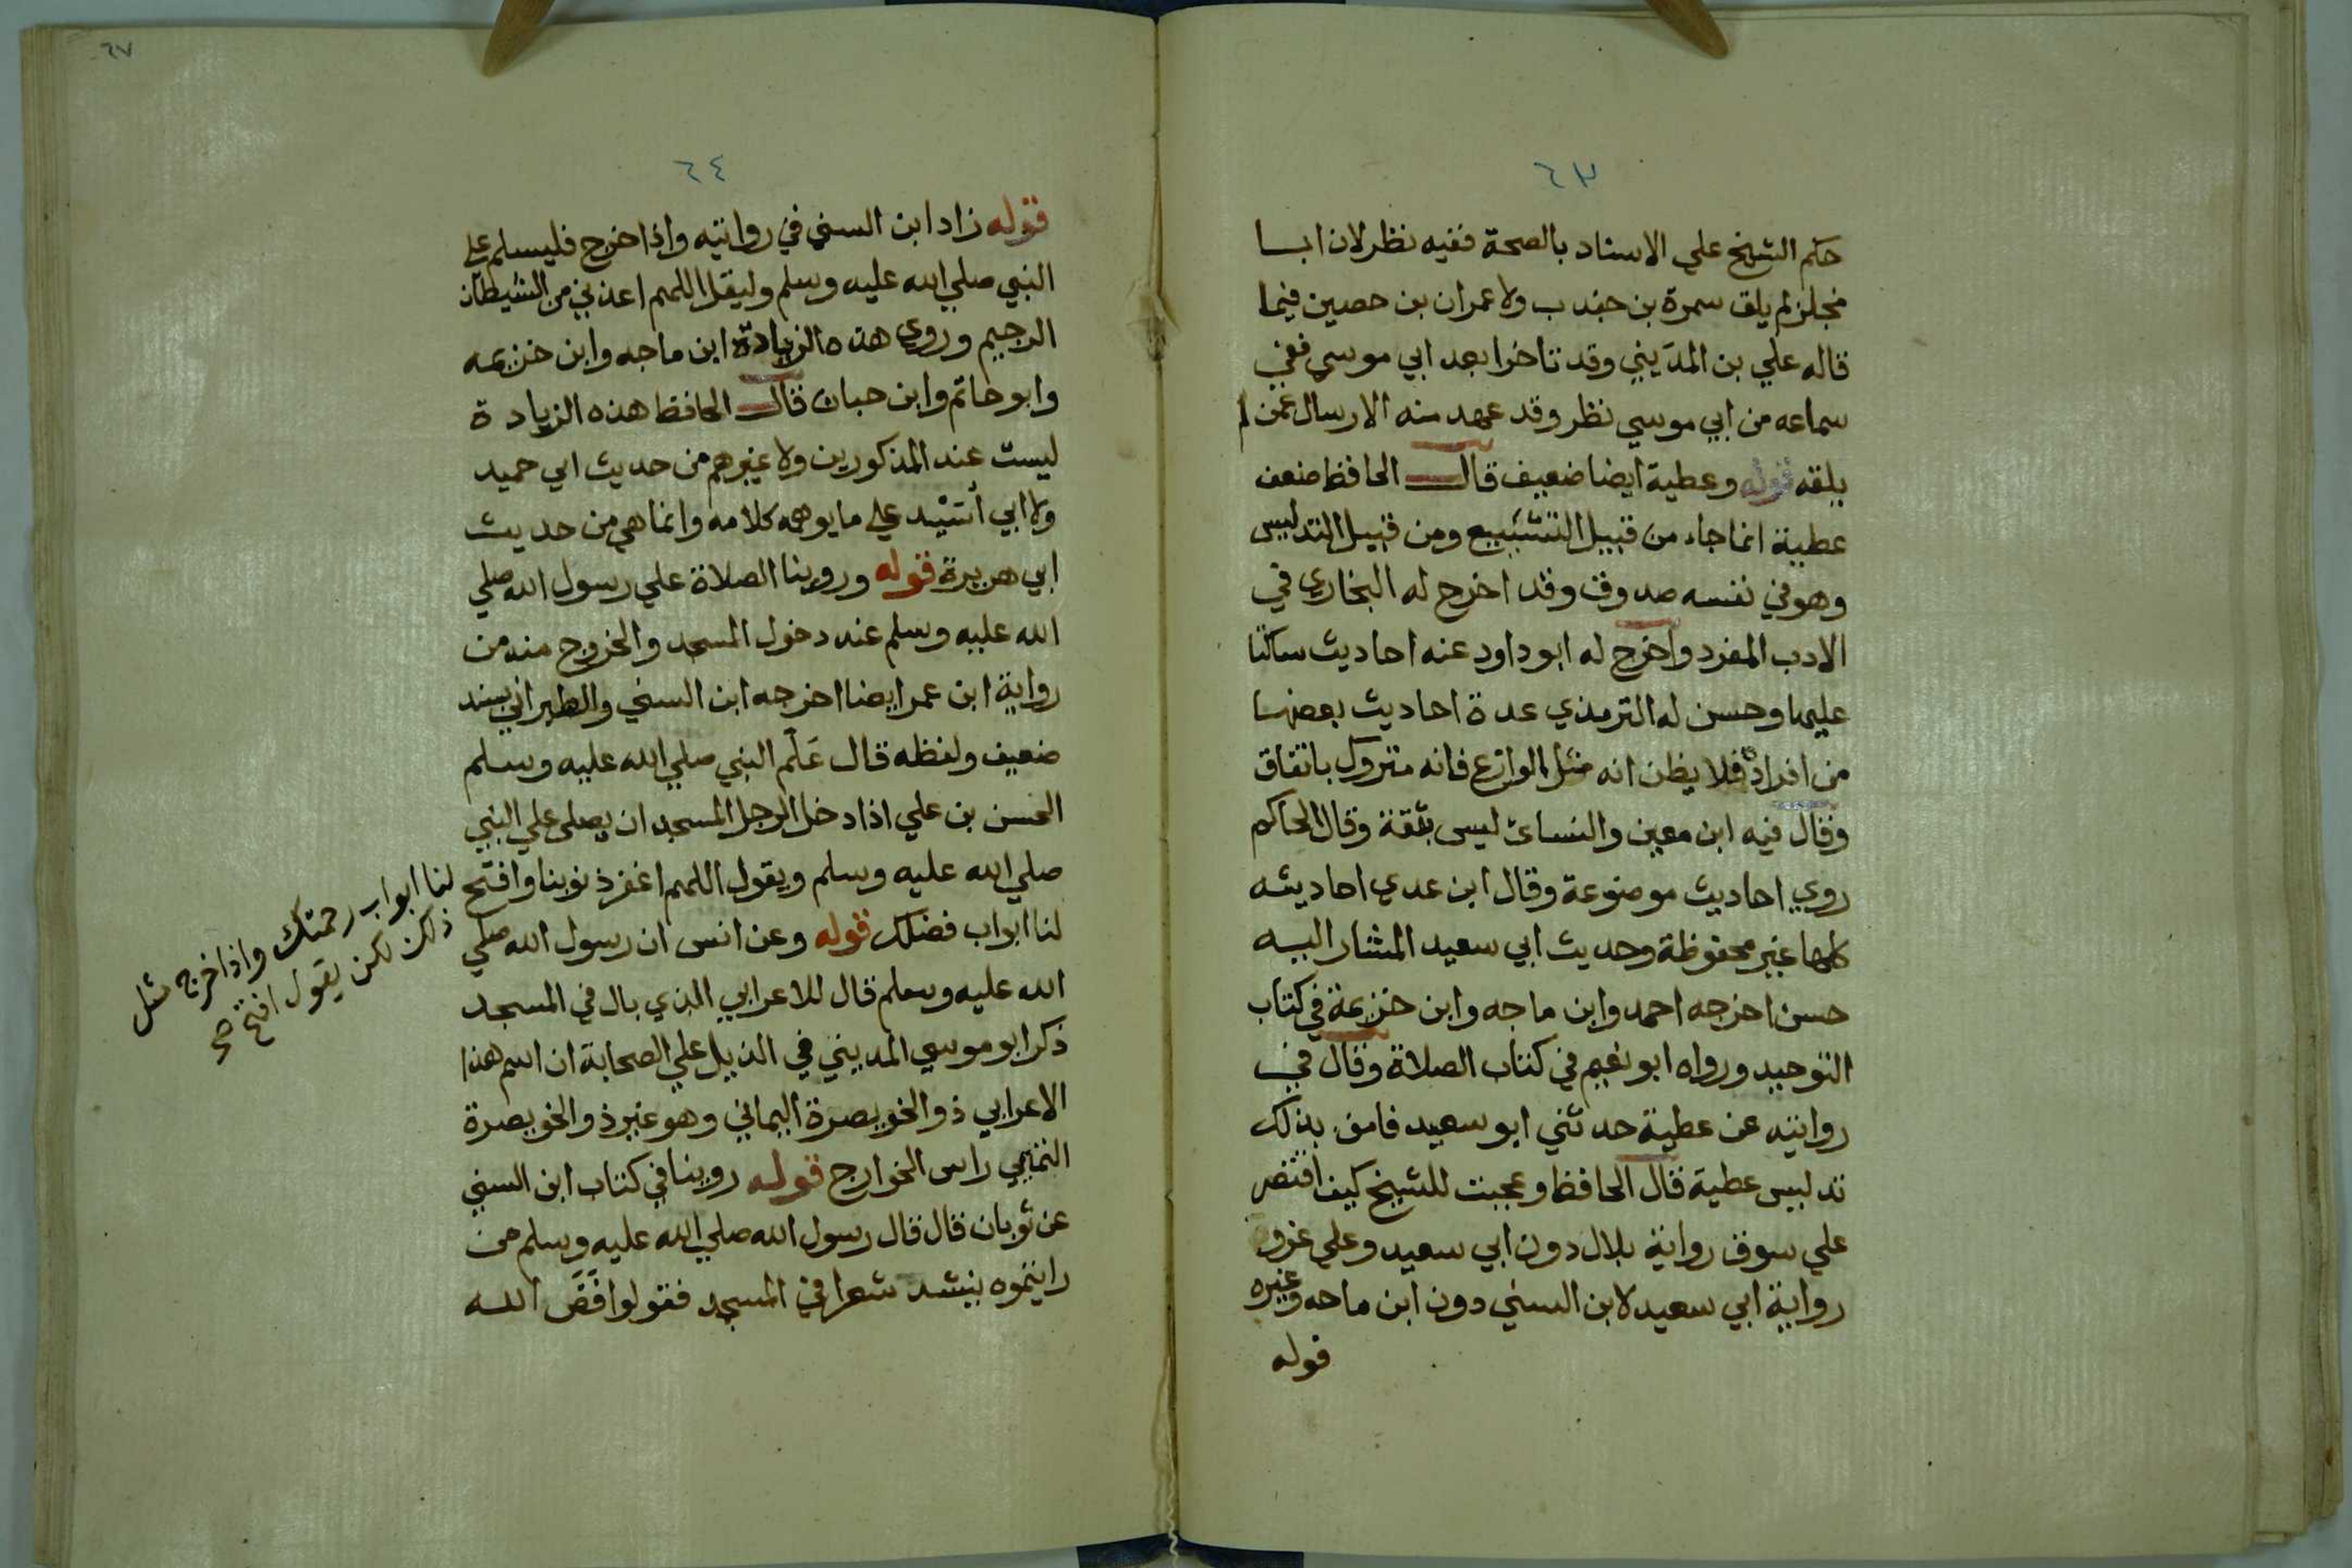 ٦٣
حكم الشيخ علي الاسناد بالصحة ففيه نظر لان ابا
مجلز لم يلق سمرة بن جندب ولا عمران بن حصين فيما
قاله علي بن المديني وقد تاخرا بعد ابي موسي ففي
سماعه من ابي موسي نظر وقد عهد منه الارسال عمن لم
يلقه قوله وعطية ايضا ضعيف قال الحافظ ضعف
عطية انما جاء من قبيل التشييع ومن قبيل التدليس
وهو في نفسه صدوق وقد اخرج له البخاري في
الادب المفرد واخرج له ابو داود عنه احاديث ساكتا
عليها وحسن له الترمذي عدة احاديث بعضها
من افراده فلا يظن انه مثل الوازع فانه متروك باتفاق
وقال فيه ابن معين والنسائ ليس بثقة وقال الحاكم
روي احاديث موضوعة وقال ابن عدي احاديثه
كلها غير محفوظة وحديث ابي سعيد المشار اليه
حسن اخرجه احمد وابن ماجه وابن خزيمة في كتاب
التوحيد ورواه ابو نعيم في كتاب الصلاة وقال في
روايته عن عطية حدثني ابو سعيد فامن بذلك
تدليس عطية قال الحافظ وعجبت للشيخ كيف اقتصر
علي سوق رواية بلال دون ابي سعيد وعلي عزو
رواية ابي سعيد لابن السني دون ابن ماجه وغيره
قوله
٦٧
٦٤
قوله زاد ابن السني في روايته واذا خرج فليسلم علي
النبي صلي الله عليه وسلم وليقل اللهم اعذني من الشيطان
الرجيم وروي هذه الزيادة ابن ماجه وابن خزيمه
وابو حاتم وابن حبان قال الحافظ هذه الزيادة
ليست عند المذكورين ولا غيرهم من حديث ابي حميد
ولا ابي اسيد علي ما يوهمه كلامه وانما هي من حديث
ابي هريرة قوله وروينا الصلاة علي رسول الله صلي
الله عليه وسلم عند دخول المسجد والخروج منه من
رواية ابن عمر ايضا اخرجه ابن السني والطبراني بسند
ضعيف ولفظه قال عَلَّم النبي صلي الله عليه وسلم
الحسن بن علي اذا دخل الرجل المسجد ان يصلى علي النبي
صلي الله عليه وسلم ويقول اللهم اغفر ذنوبنا وافتح
لنا ابواب فضلك قوله وعن انس ان رسول الله صلي
الله عليه وسلم قال للاعرابي الذي بال في المسجد
ذكر ابو موسي المديني في الذيل علي الصحابة ان اسم هذا
الاعرابي ذو الخويصرة اليماني وهو غير ذو الخويصرة
التميمي راس الخوارج قوله روينا في كتاب ابن السني
عن ثوبان قال قال رسول الله صلي الله عليه وسلم من
رايتموه ينشد شعرا في المسجد فقولوا فَضَّ الله
لنا ابواب رحمتك واذا خرج مثل
ذلك لكن يقول افتح صح